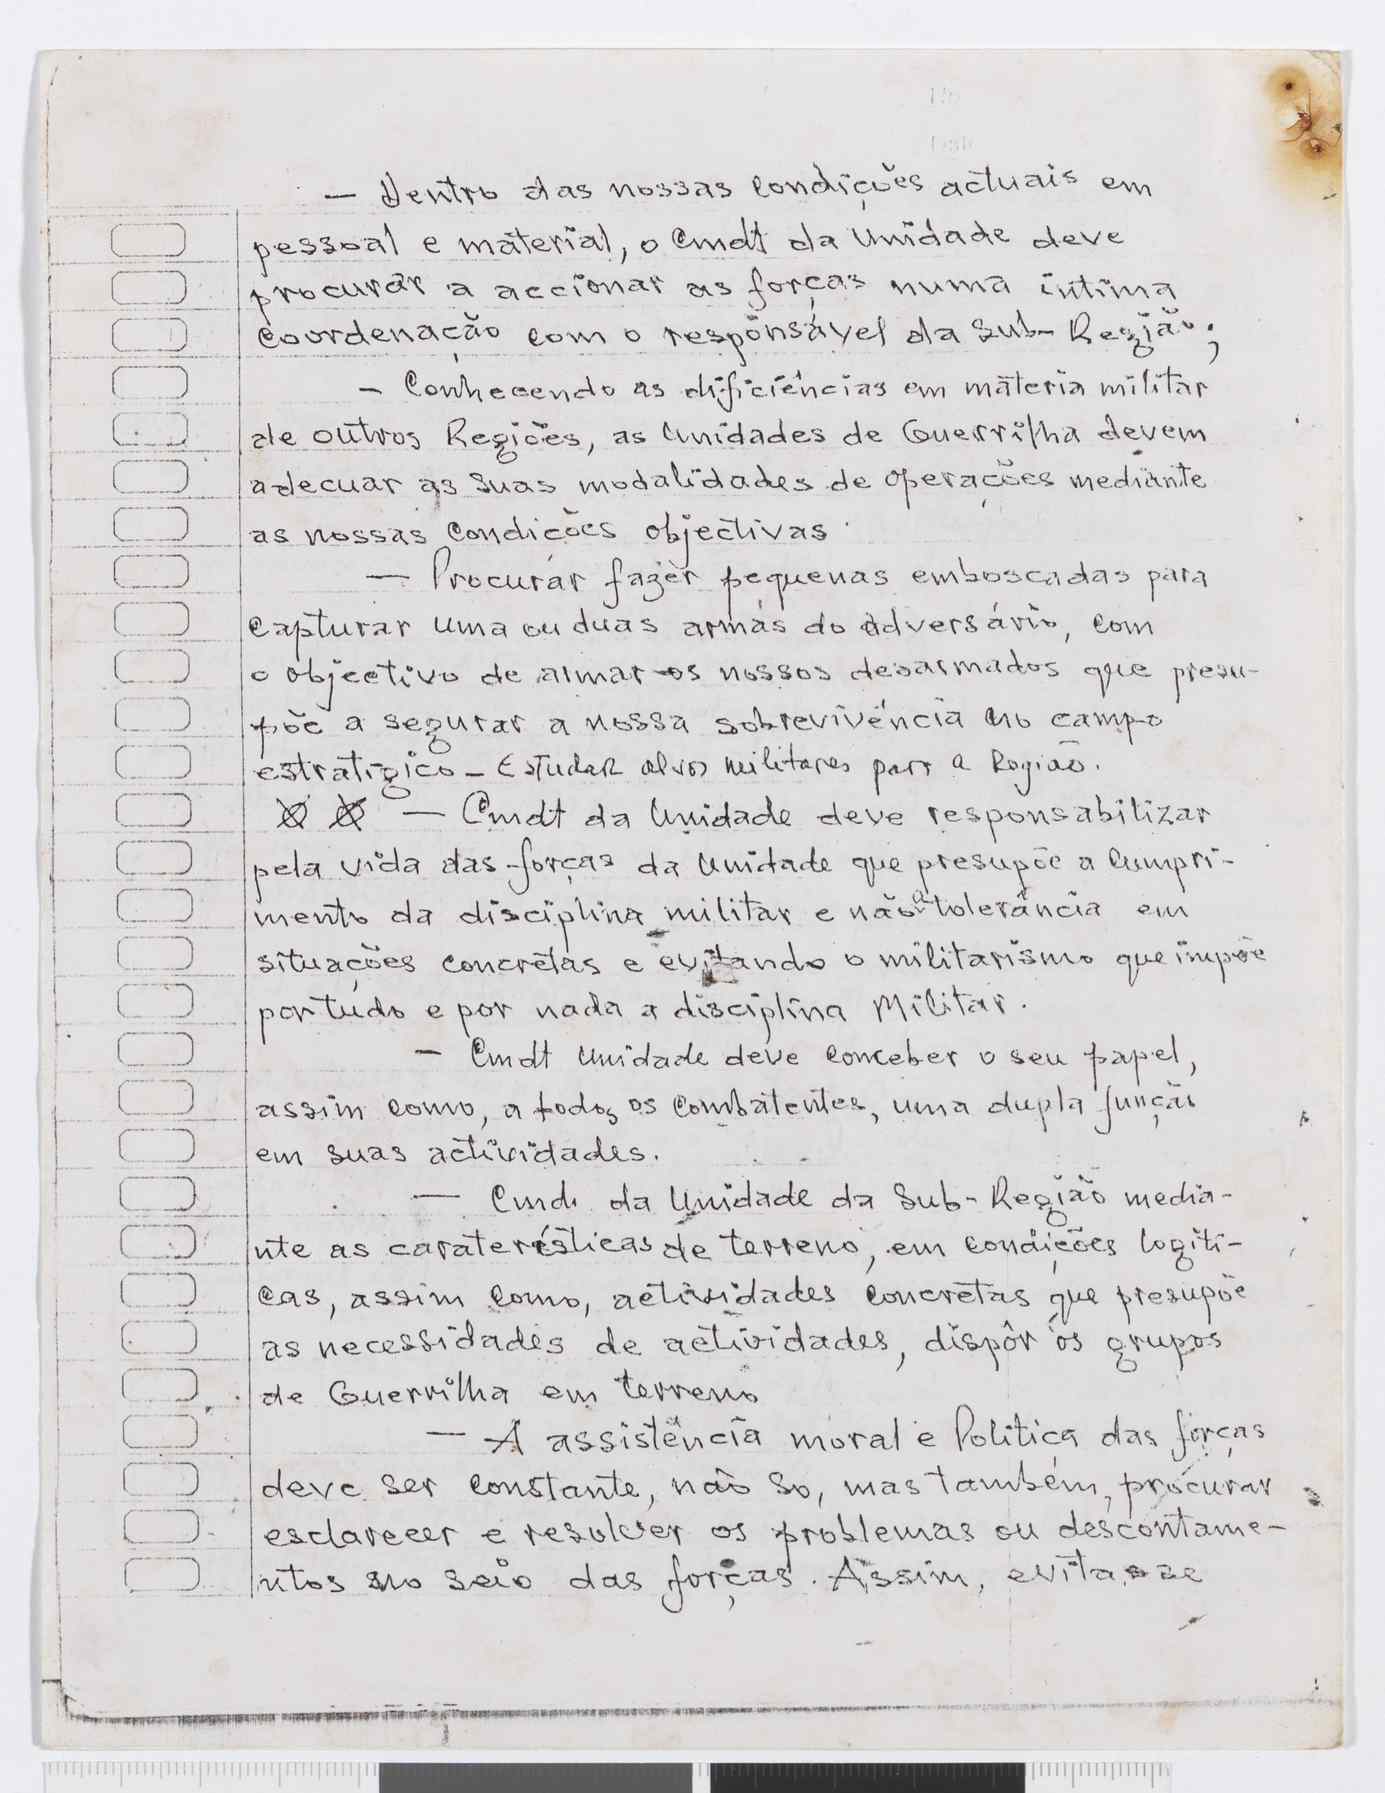 — Dentro das nossas condições actuais em
pessoal e material, o Cmdt da Unidade deve
procurar a accionar as forças numa íntima
coordenação com o responsável da Sub-Região;
- Conhecendo as dificiências em máteria militar
de outros Regiões, as Unidades de Guerrilha devem
adecuar as suas modalidades de operações mediante
as nossas condições objectivas.
— Procurar fazer pequenas emboscadas para
capturar uma ou duas armas do adversário, com
o objectivo de armar os nossos desarmados que presu-
põe a segurar a nossa sobrevivência no campo
estratigico - Estudar alvos militares para a Região.
— Cmdt da Unidade deve responsabilizar
pela vida das forças da Unidade que presupõe a cumpri-
mento da disciplina militar e não a tolerância em
situações concretas e evitando o militarismo que impõe
por tudo e por nada a disciplina Militar.
- Cmdt Unidade deve conceber o seu papel,
assim como, a todos os combatentes, uma dupla função
em suas actividades.
— Cmdt da Unidade da Sub-Região media-
nte as caraterísticas de terreno, em condições logiti-
cas, assim como, actividades concretas que presupõe
as necessidades de actividades, dispôr os grupos
de Guerrilha em terreno
— A assistência moral e Politica das forças
deve ser constante, não so, mas também, procurar
esclarecer e resolver os problemas ou descontame-
ntos no seio das forças. Assim, evita-se